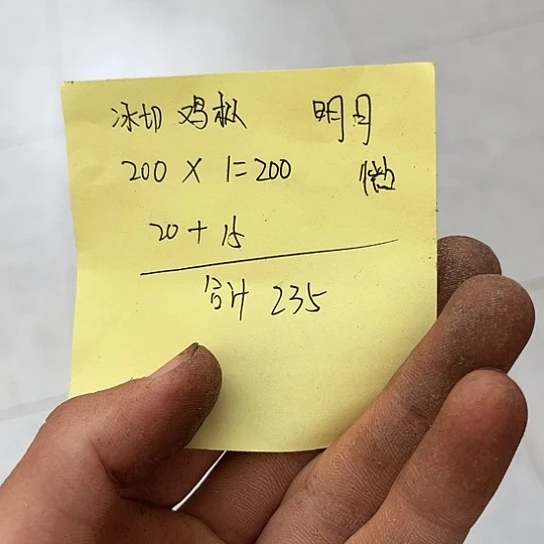 冰切 鸡枞 明月
200 × 1=200
20 + 15
合计 235